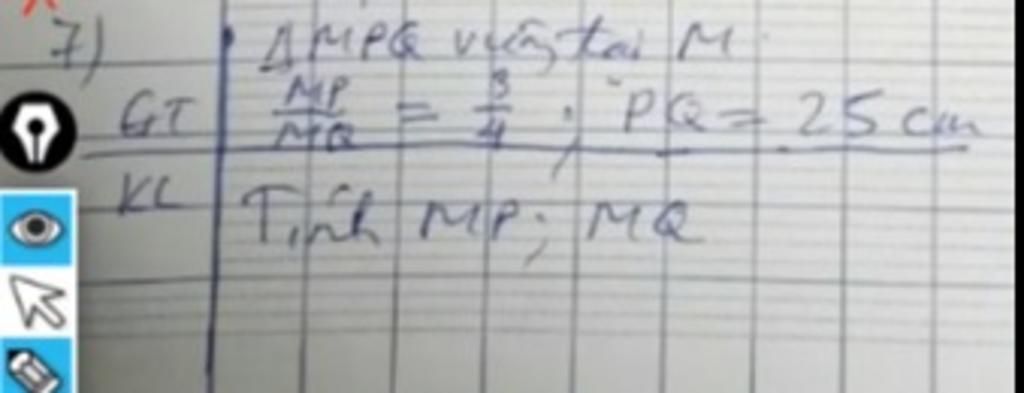 7) ΔMPQ vuông tại M
GT MP/MQ = 3/4 ; PQ = 25 cm
KL Tính MP; MQ